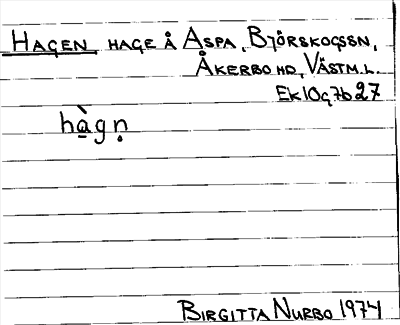 HAGEN HAGE Å ASPA, BJÖRSKOGSSN,
ÅKERBO HD, VÄSTM.L.
EK10g7b27
hà̱gṇ
BIRGITTA NURBO 1974